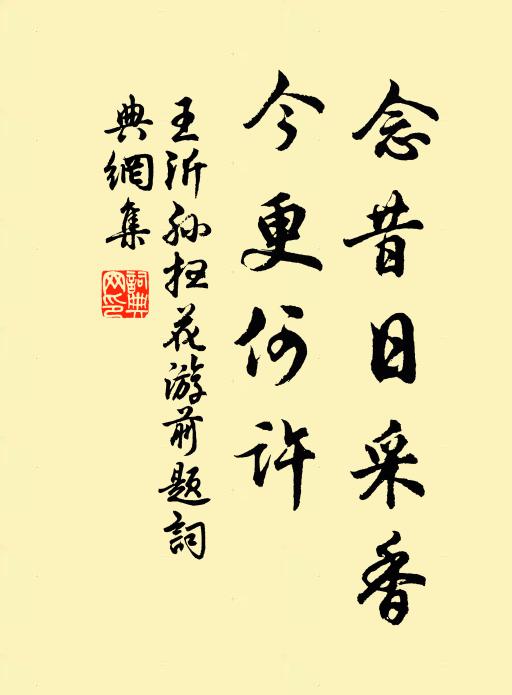 念昔日采香
今更何许
王沂孙扫花游前题词
典網集
詞典網印